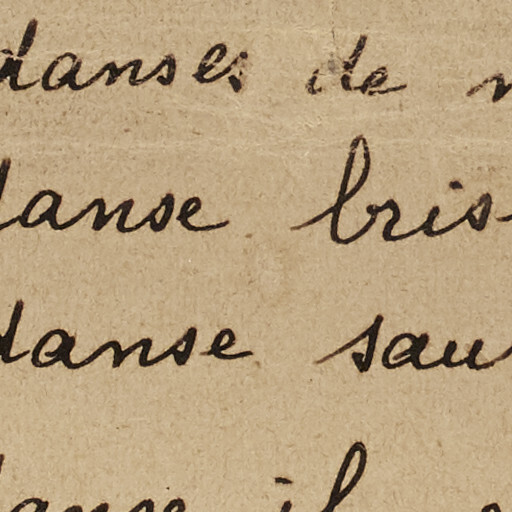 danses de
danse bris
danse sau
danse il